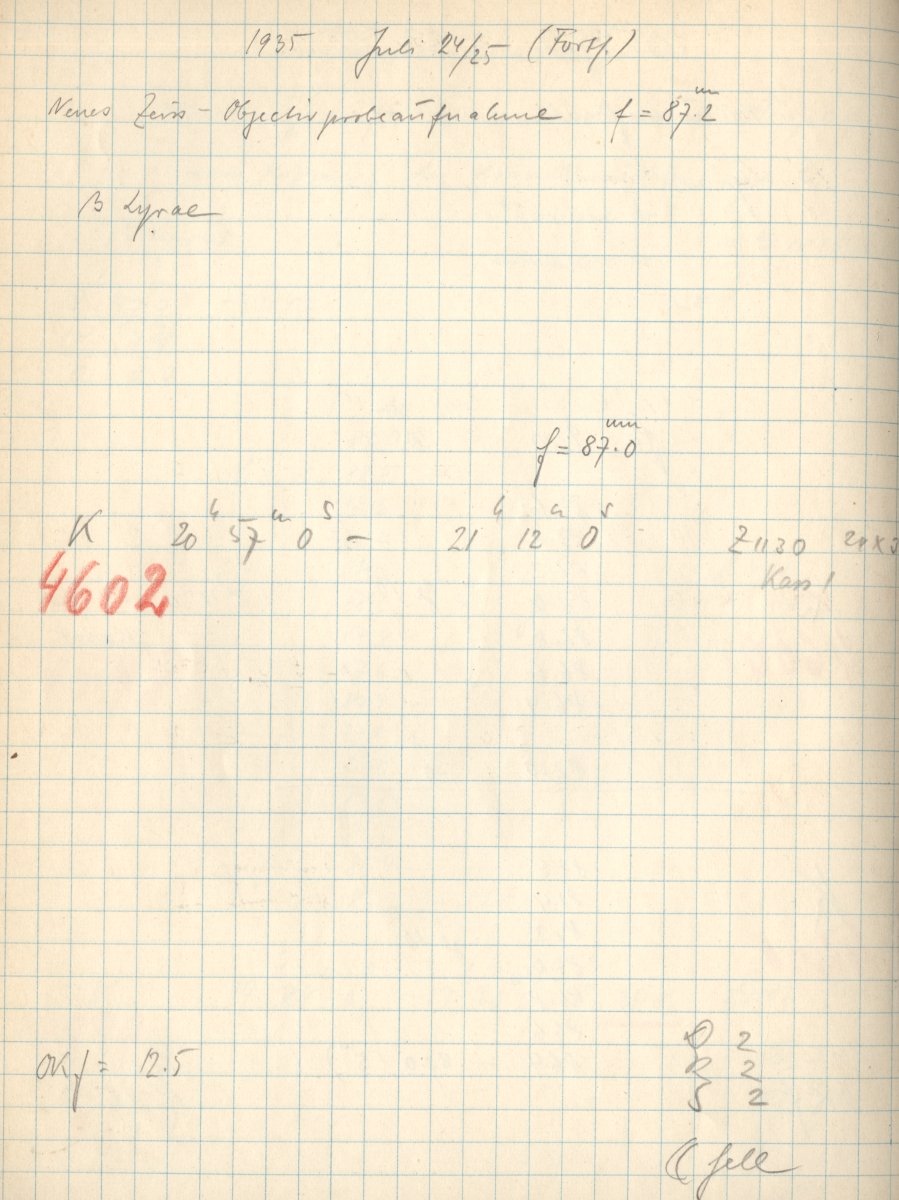 1935 Juli 24/25 (Forts.)
Neues Zeiss-Objectivprobeaufnahme f = 87.2 mm
β Lyrae
f = 87.0 mm
K 20h 57m 0s – 21h 12m 0s Z1130 24×3
4602 Kass 1
D 2
OKf = 12.5 R 2
S 2
☾ hell